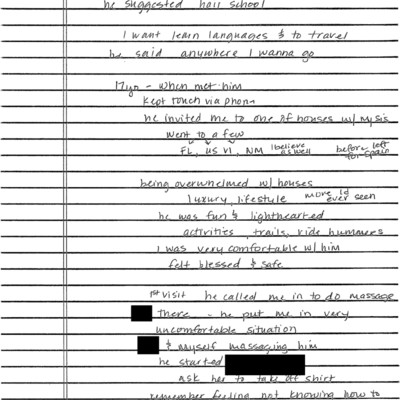 he suggested hair school
I want learn languages & to travel
he said anywhere I wanna go
17yo - when met him
kept touch via phone
he invited me to one of houses w/ my sis
went to a few
FL, US VI, NM I believe as well before left for Spain
being overwhelmed w/ houses
luxury lifestyle more I'd ever seen
he was fun & lighthearted
activities, trails, ride hummers
I was very comfortable w/ him
felt blessed & safe
1st visit he called me in to do massage
There - he put me in very
uncomfortable situation
& myself massaging him
he started
ask her to take off shirt
remember feeling not knowing how to